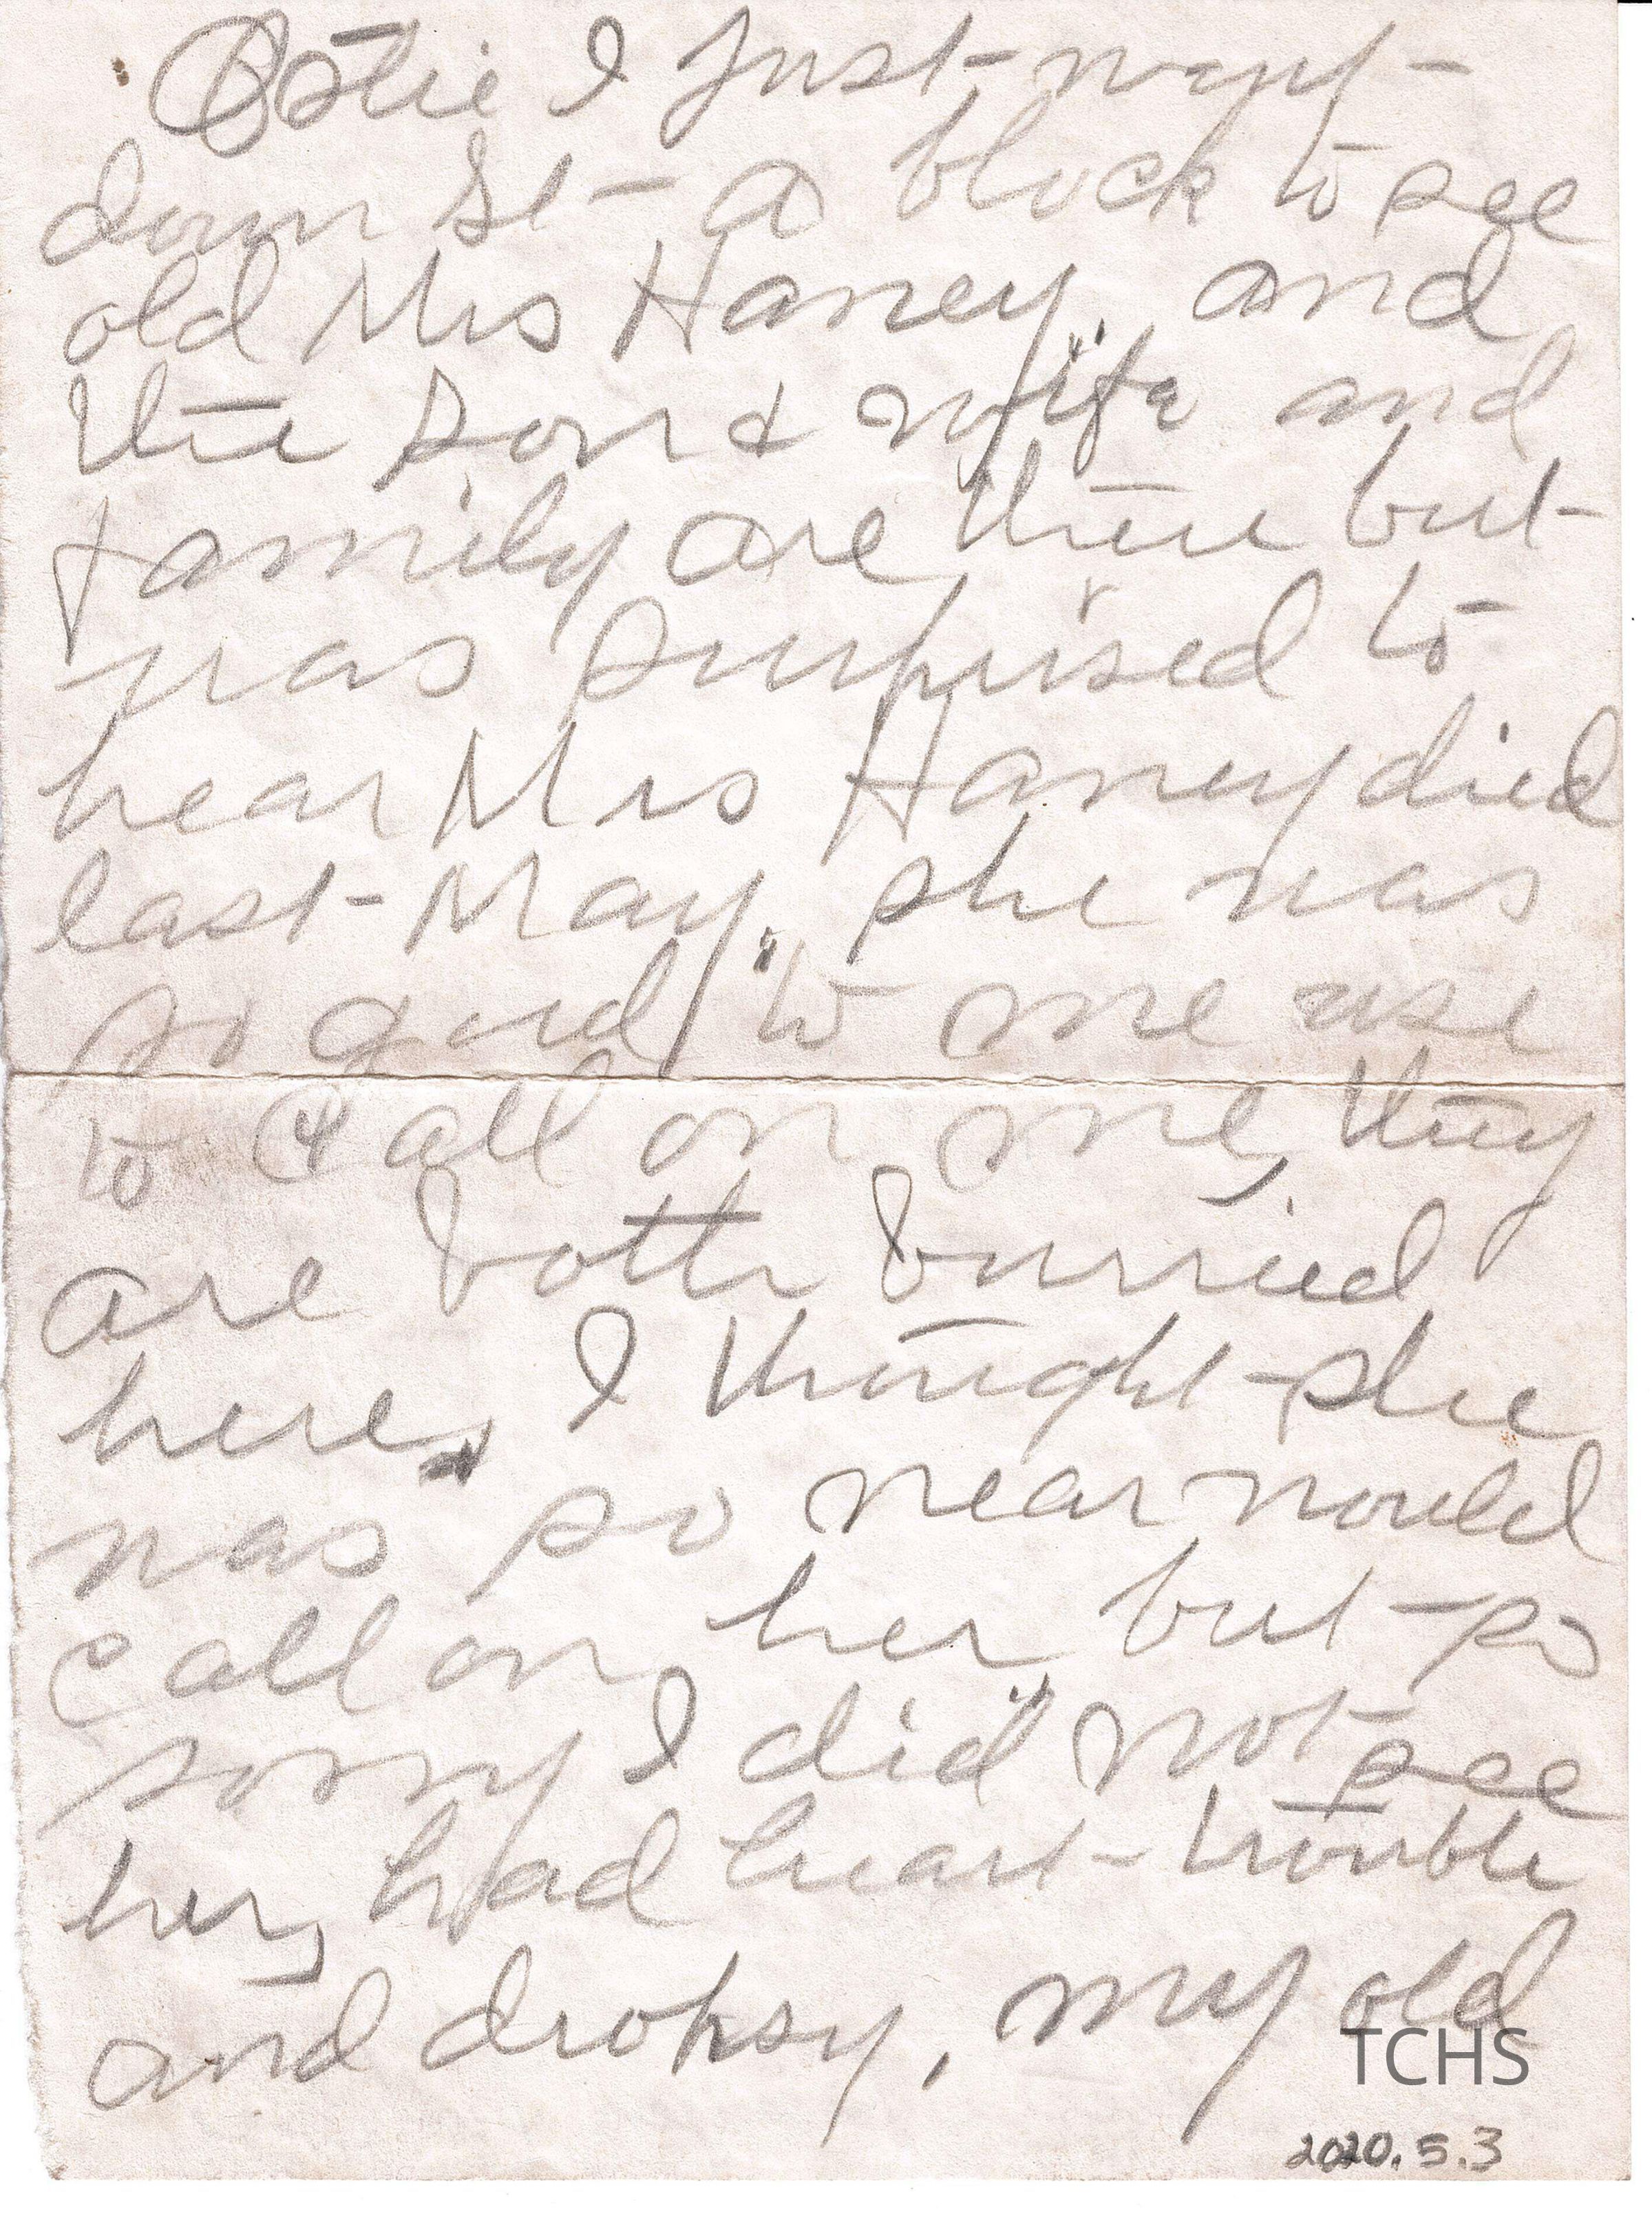 Ostie I just went
down St - a block to see
old Mrs Haney, and
the son & wife and
family are there but
was surprised to
hear Mrs Haney died
last May, she was
so good to me use
to call on me, they
are both burried
here, I thought she
was so near would
call on her but so
sorry I did not see
her, had heart trouble
and dropsy, my old
TCHS
2020.5.3